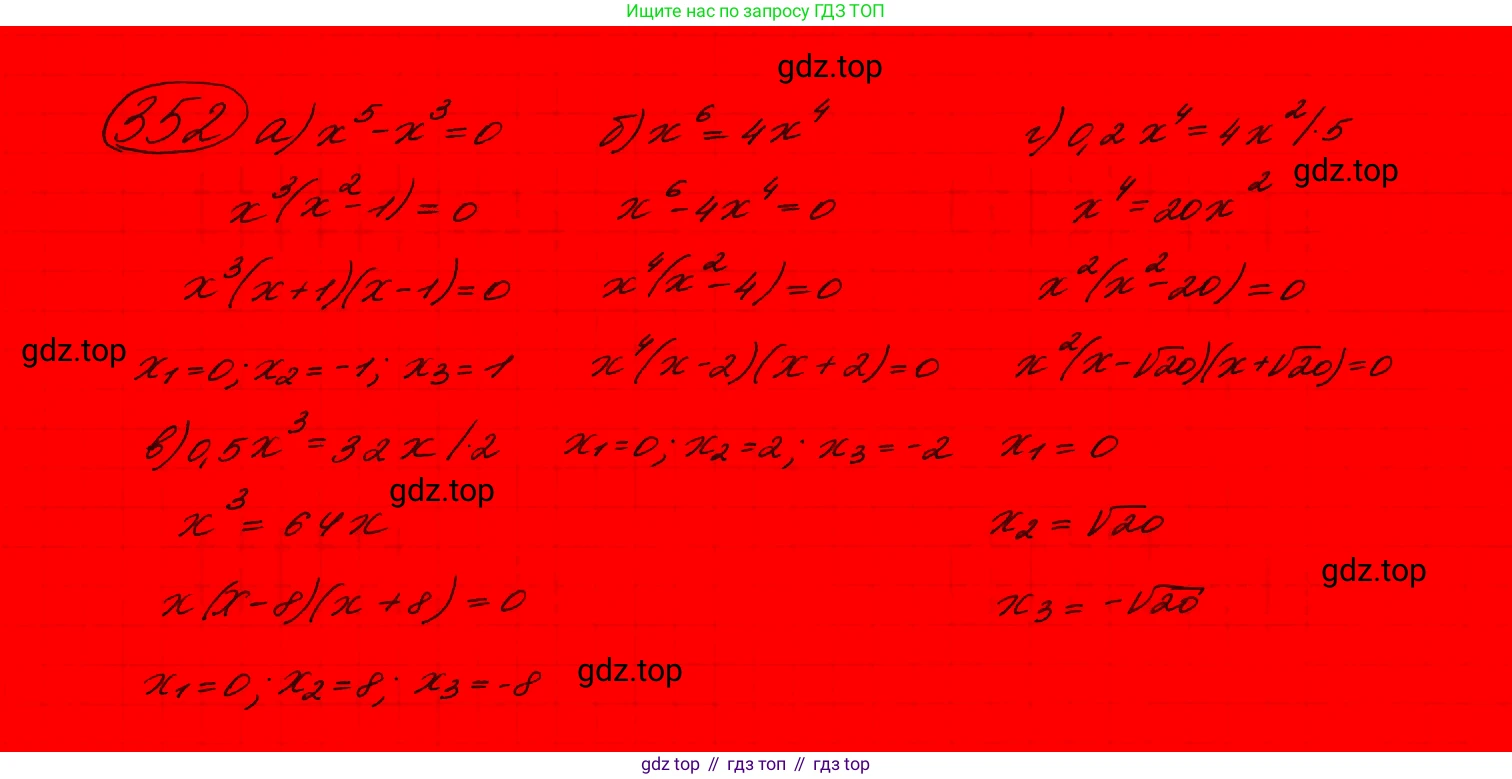 Ищите нас по запросу ГДЗ ТОП
gdz.top
352 а) x⁵-x³=0
x³(x²-1)=0
x³(x+1)(x-1)=0
gdz.top
x₁=0; x₂=-1; x₃=1
б) x⁶=4x⁴
x⁶-4x⁴=0
x⁴(x²-4)=0
x⁴(x-2)(x+2)=0
x₁=0; x₂=2; x₃=-2
г) 0,2x⁴=4x²/·5
gdz.top
x⁴=20x²
x²(x²-20)=0
x²(x-√20)(x+√20)=0
x₁=0
x₂=√20
x₃=-√20
gdz.top
в) 0,5x³=32x/·2
gdz.top
x³=64x
x(x-8)(x+8)=0
x₁=0; x₂=8; x₃=-8
gdz.top
gdz top // гдз топ // гдз top